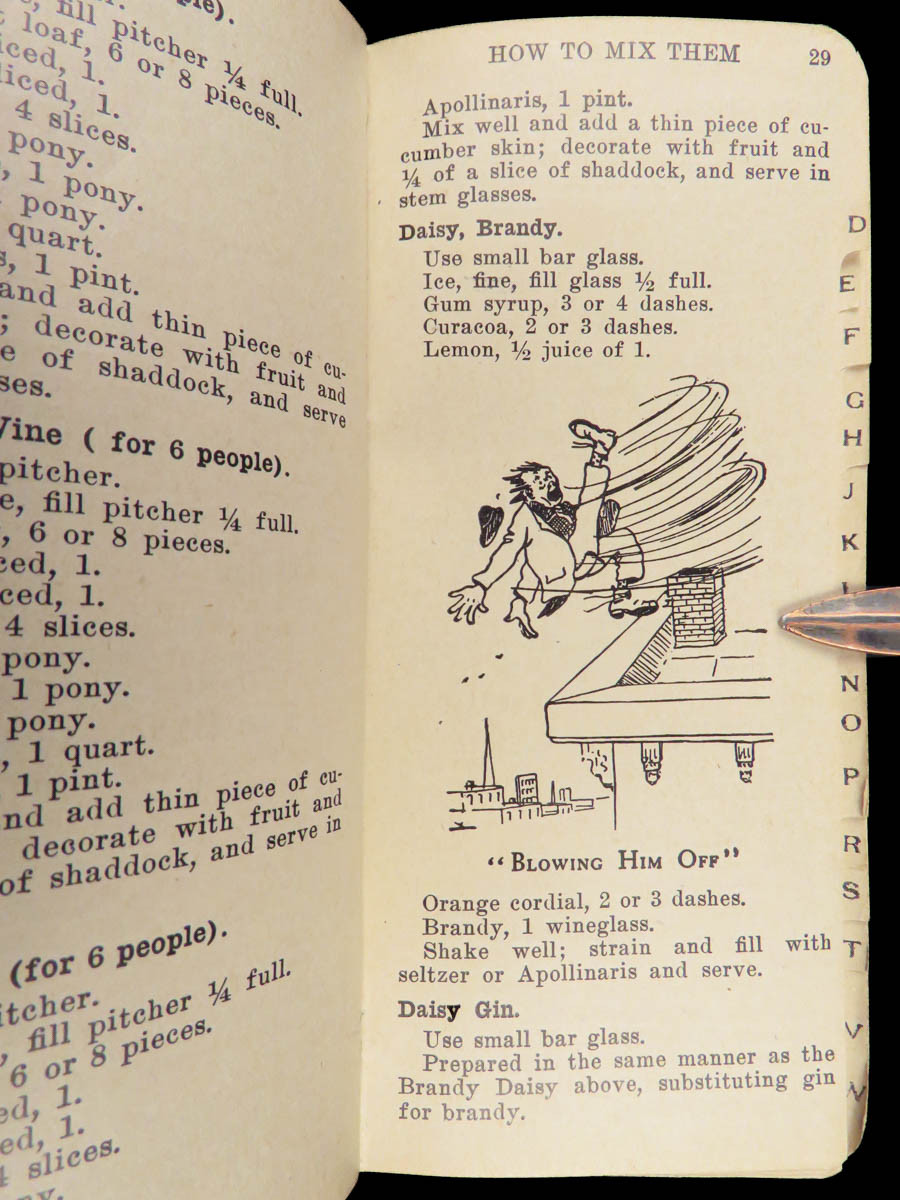 fill pitcher ¼ full.
loaf, 6 or 8 pieces.
1.
1.
4 slices.
pony.
1 pony.
pony.
quart.
1 pint.
and add thin piece of cu-
; decorate with fruit and
of shaddock, and serve
( for 6 people).
pitcher.
fill pitcher ¼ full.
6 or 8 pieces.
1.
1.
4 slices.
pony.
1 pony.
pony.
, 1 quart.
1 pint.
add thin piece of cu-
decorate with fruit and
of shaddock, and serve in
(for 6 people).
fill pitcher ¼ full.
6 or 8 pieces.
1.
1.
slices.
HOW TO MIX THEM 29
Apollinaris, 1 pint.
Mix well and add a thin piece of cu-
cumber skin; decorate with fruit and
¼ of a slice of shaddock, and serve in
stem glasses.
Daisy, Brandy.
Use small bar glass.
Ice, fine, fill glass ½ full.
Gum syrup, 3 or 4 dashes.
Curacoa, 2 or 3 dashes.
Lemon, ½ juice of 1.
"Blowing Him Off"
Orange cordial, 2 or 3 dashes.
Brandy, 1 wineglass.
Shake well; strain and fill with
seltzer or Apollinaris and serve.
Daisy Gin.
Use small bar glass.
Prepared in the same manner as the
Brandy Daisy above, substituting gin
for brandy.
D
E
F
G
H
J
K
N
O
P
R
S
T
V